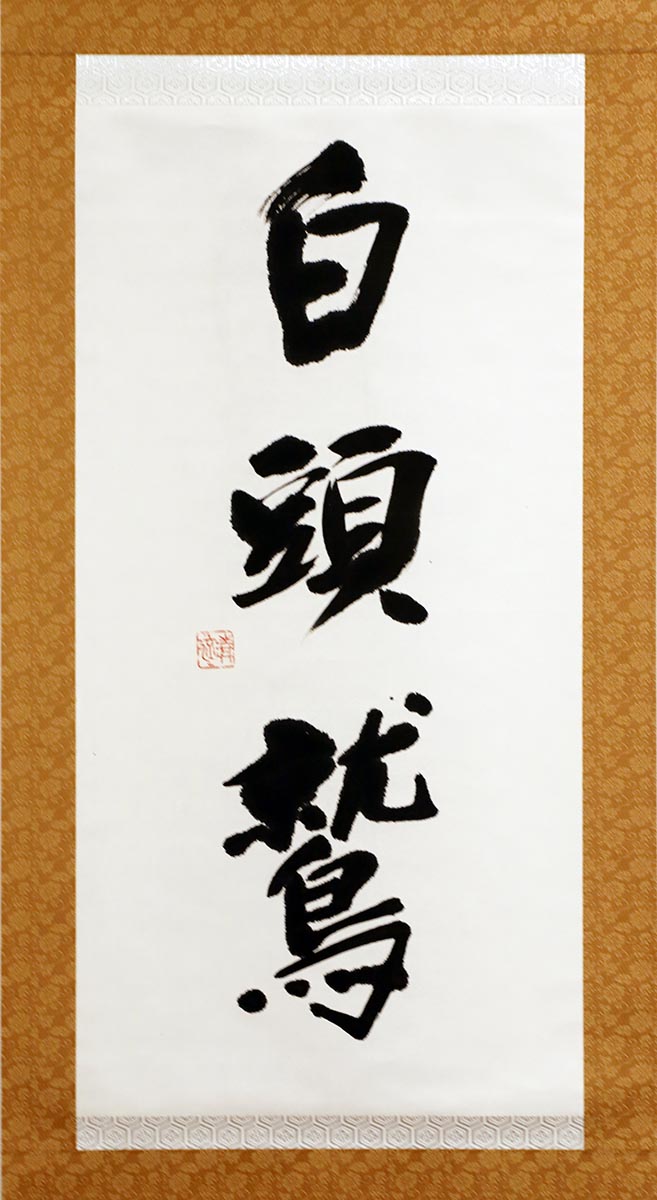 白頭鷲